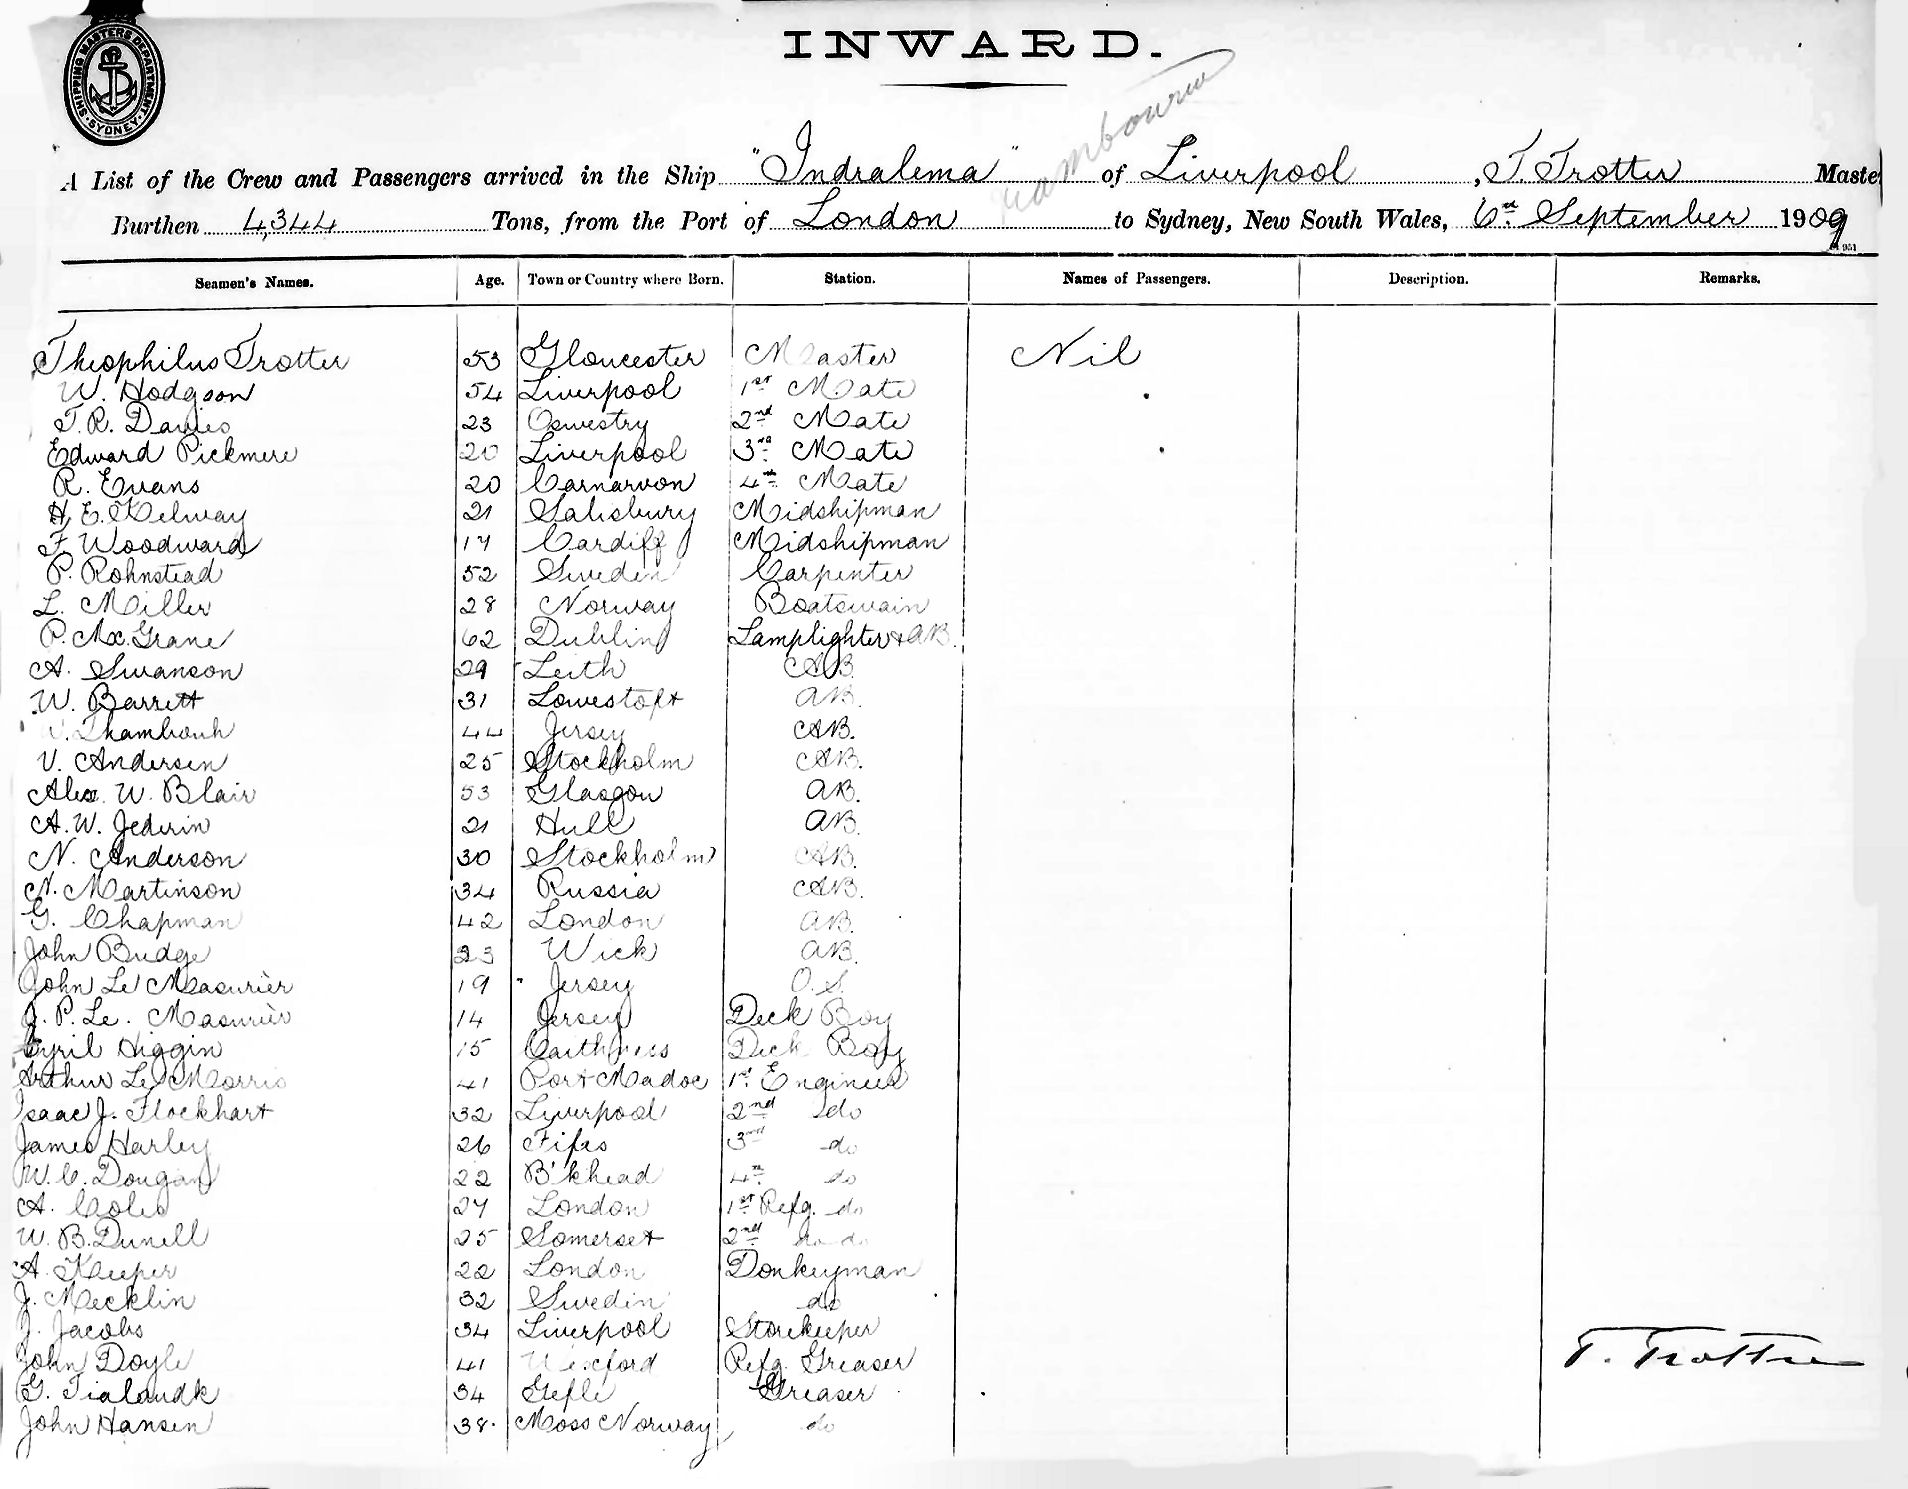 INWARD.
SHIPPING MASTERS DEPARTMENT
SYDNEY
A List of the Crew and Passengers arrived in the Ship "Indralema" of Liverpool, T. Trotter Master
Burthen 4,344 Tons, from the Port of London to Sydney, New South Wales, 6th September 1909
Seamen's Names. Age. Town or Country where Born. Station. Names of Passengers. Description. Remarks.
Theophilus Trotter 53 Gloucester Master Nil
W. Hodgson 54 Liverpool 1st Mate
T. R. Davies 23 Oswestry 2nd Mate
Edward Pickmere 20 Liverpool 3rd Mate
R. Evans 20 Carnarvon 4th Mate
H. E. Kelway 21 Salisbury Midshipman
F. Woodward 17 Cardiff Midshipman
P. Rohnstead 52 Sweden Carpenter
L. Miller 28 Norway Boatswain
P. Mc.Grane 62 Dublin Lamplighter & AB.
A. Swanson 29 Leith AB.
W. Barrett 31 Lowestoft AB.
44 Jersey AB.
V. Andersen 25 Stockholm AB.
Alex. W. Blair 53 Glasgow AB.
A. W. Jederin 21 Hull AB.
N. Anderson 30 Stockholm AB.
N. Martinson 34 Russia AB.
G. Chapman 42 London AB.
John Budge 23 Wick AB.
John Le Masurièr 19 Jersey O. S.
J. P. Le. Masurièr 14 Jersey Deck Boy
Cyril Higgin 15 Caithness Deck Boy
Arthur Le Morris 41 Port Madoc 1st Engineer
Isaac J. Flockhart 32 Liverpool 2nd do
James Harley 26 Fifes 3rd do
W. C. Dougan 22 B'khead 4th do
A. Coles 27 London 1st Refg. do
W. B. Dunell 25 Somerset 2nd do do
A. Keeper 22 London Donkeyman
J. Mecklin 32 Swedin do
J. Jacobs 34 Liverpool Storekeeper
John Doyle 41 Wexford Refg. Greaser
G. 34 Gefle Greaser
John Hansen 38. Moss Norway do
T. Trotter